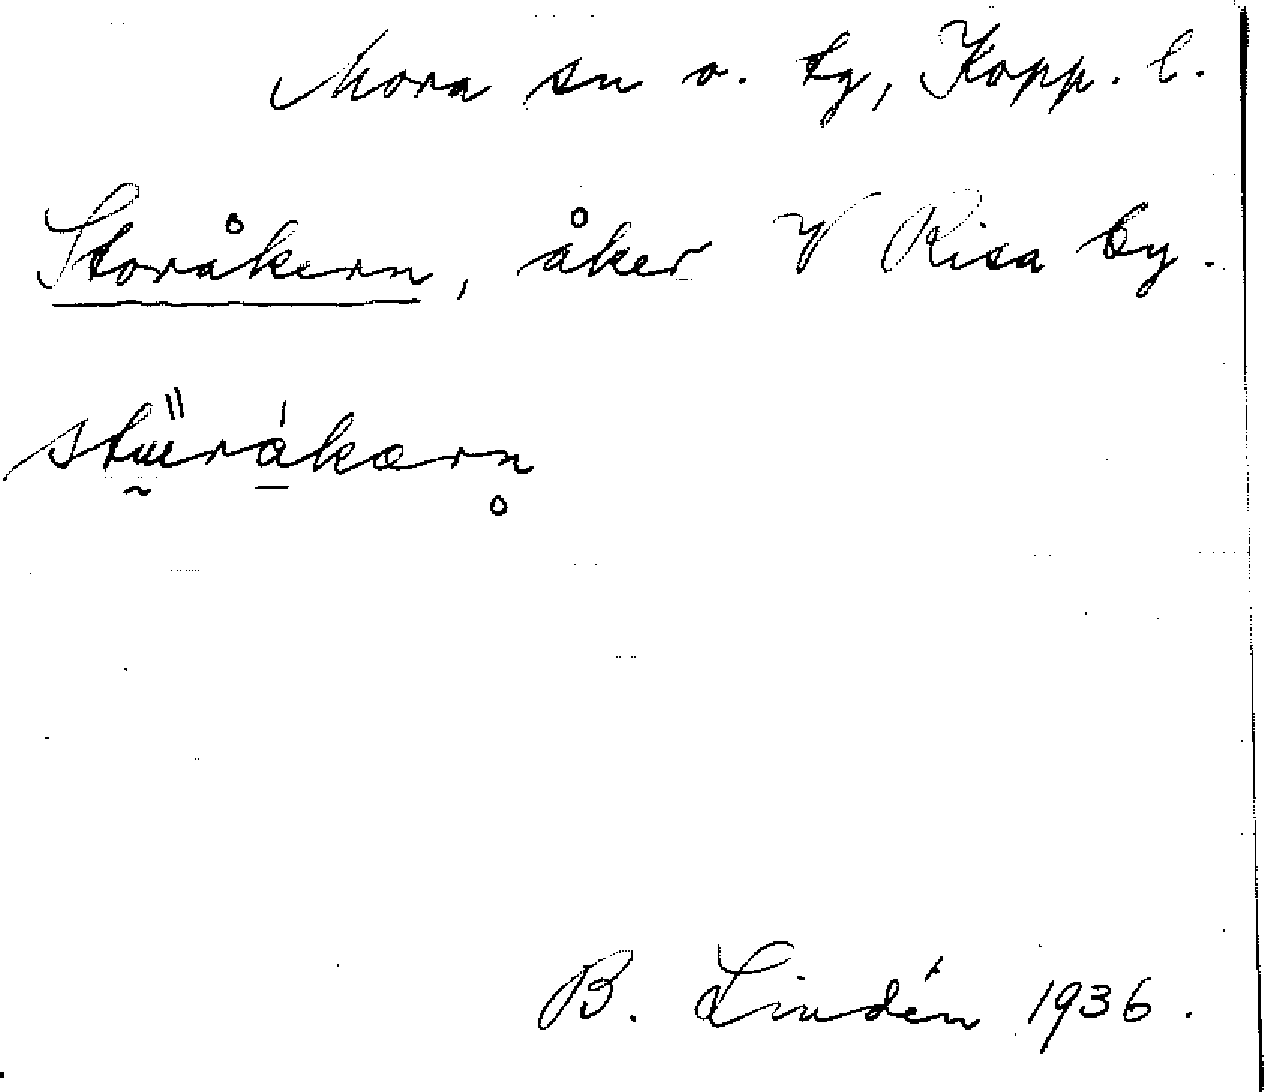 Mora sn o. tg, Kopp. l.
Storåkern, åker V Risa by.
B. Lindén 1936.